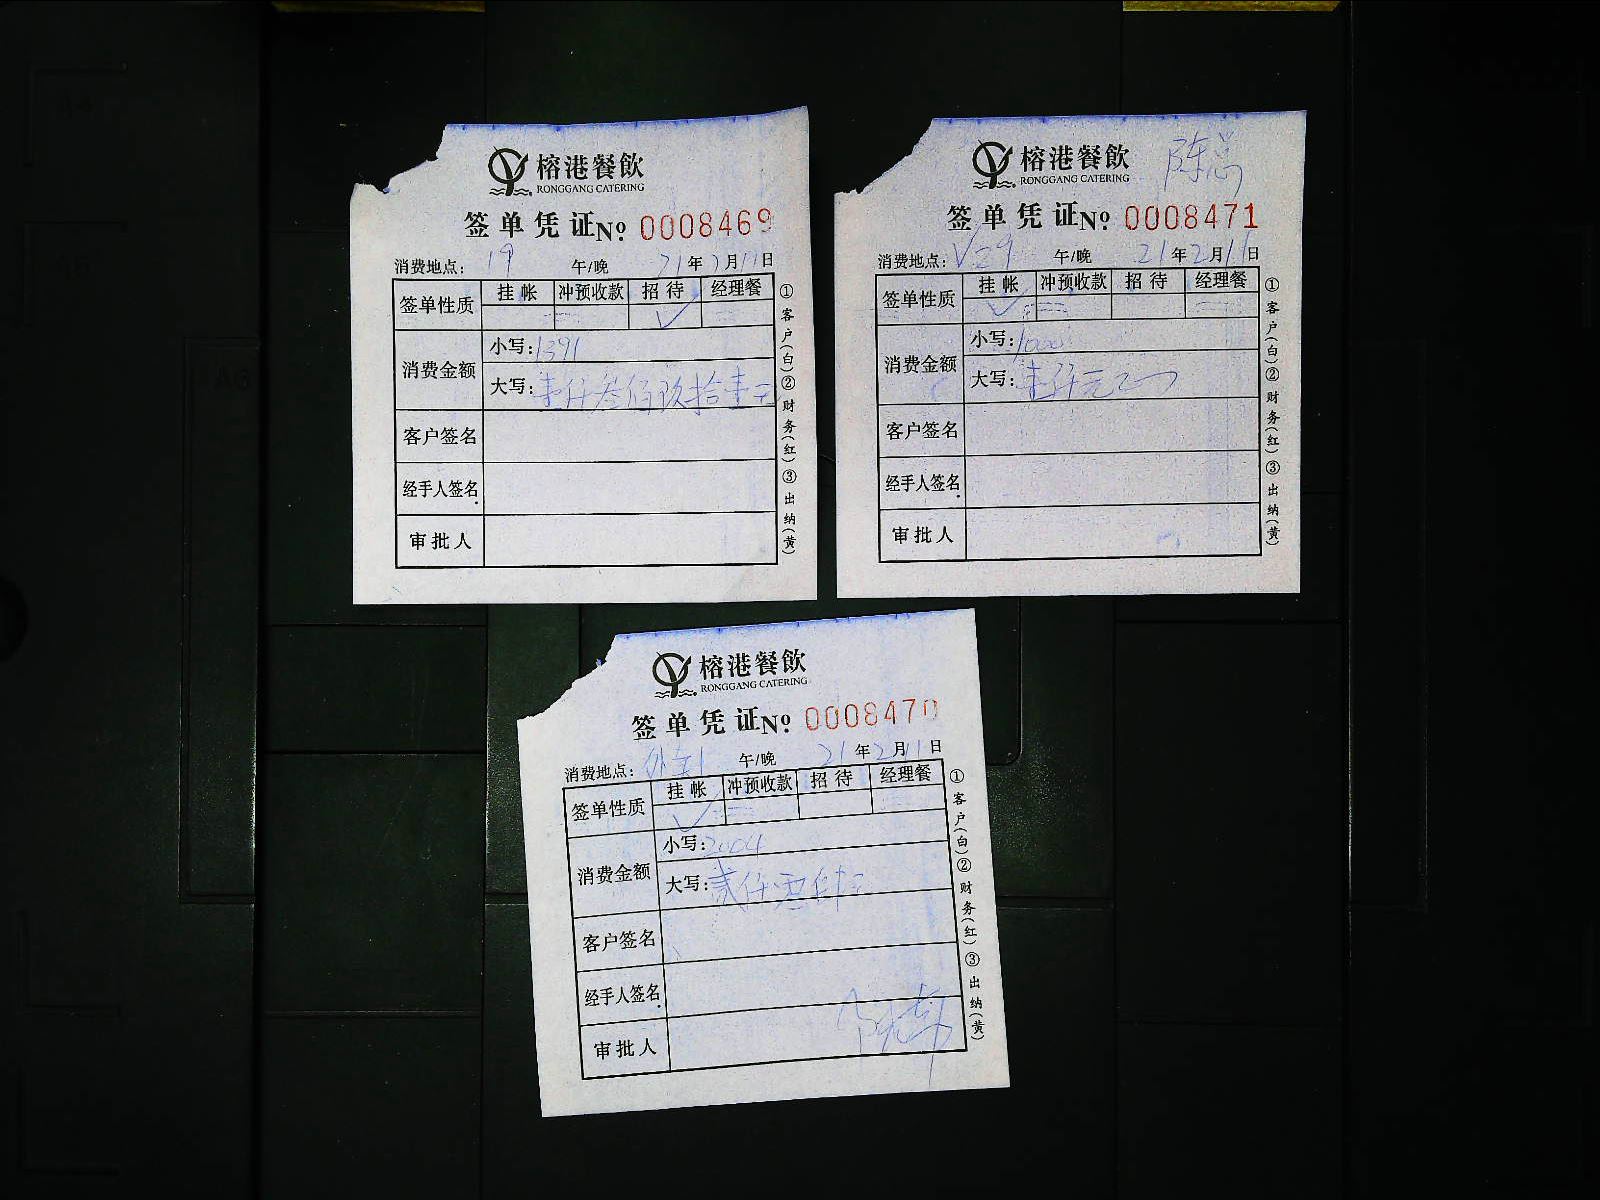 榕港餐飲
RONGGANG CATERING
签单凭证No 0008469
消费地点: 19 午/晚 21年2月11日
签单性质 挂帐 冲预收款 招待 经理餐
消费金额 小写: 1391
大写: 壹仟叁佰玖拾壹元
客户签名
经手人签名
审批人
①客户(白)②财务(红)③出纳(黄)
榕港餐飲
RONGGANG CATERING
陈总
签单凭证No 0008471
消费地点: 午/晚 21年2月11日
签单性质 挂帐 冲预收款 招待 经理餐
消费金额 小写: 1000
大写: 壹仟元
客户签名
经手人签名
审批人
①客户(白)②财务(红)③出纳(黄)
榕港餐飲
RONGGANG CATERING
签单凭证No 0008470
消费地点: 午/晚 21年2月11日
签单性质 挂帐 冲预收款 招待 经理餐
消费金额 小写: 2004
大写: 贰仟零肆元
客户签名
经手人签名
审批人
①客户(白)②财务(红)③出纳(黄)